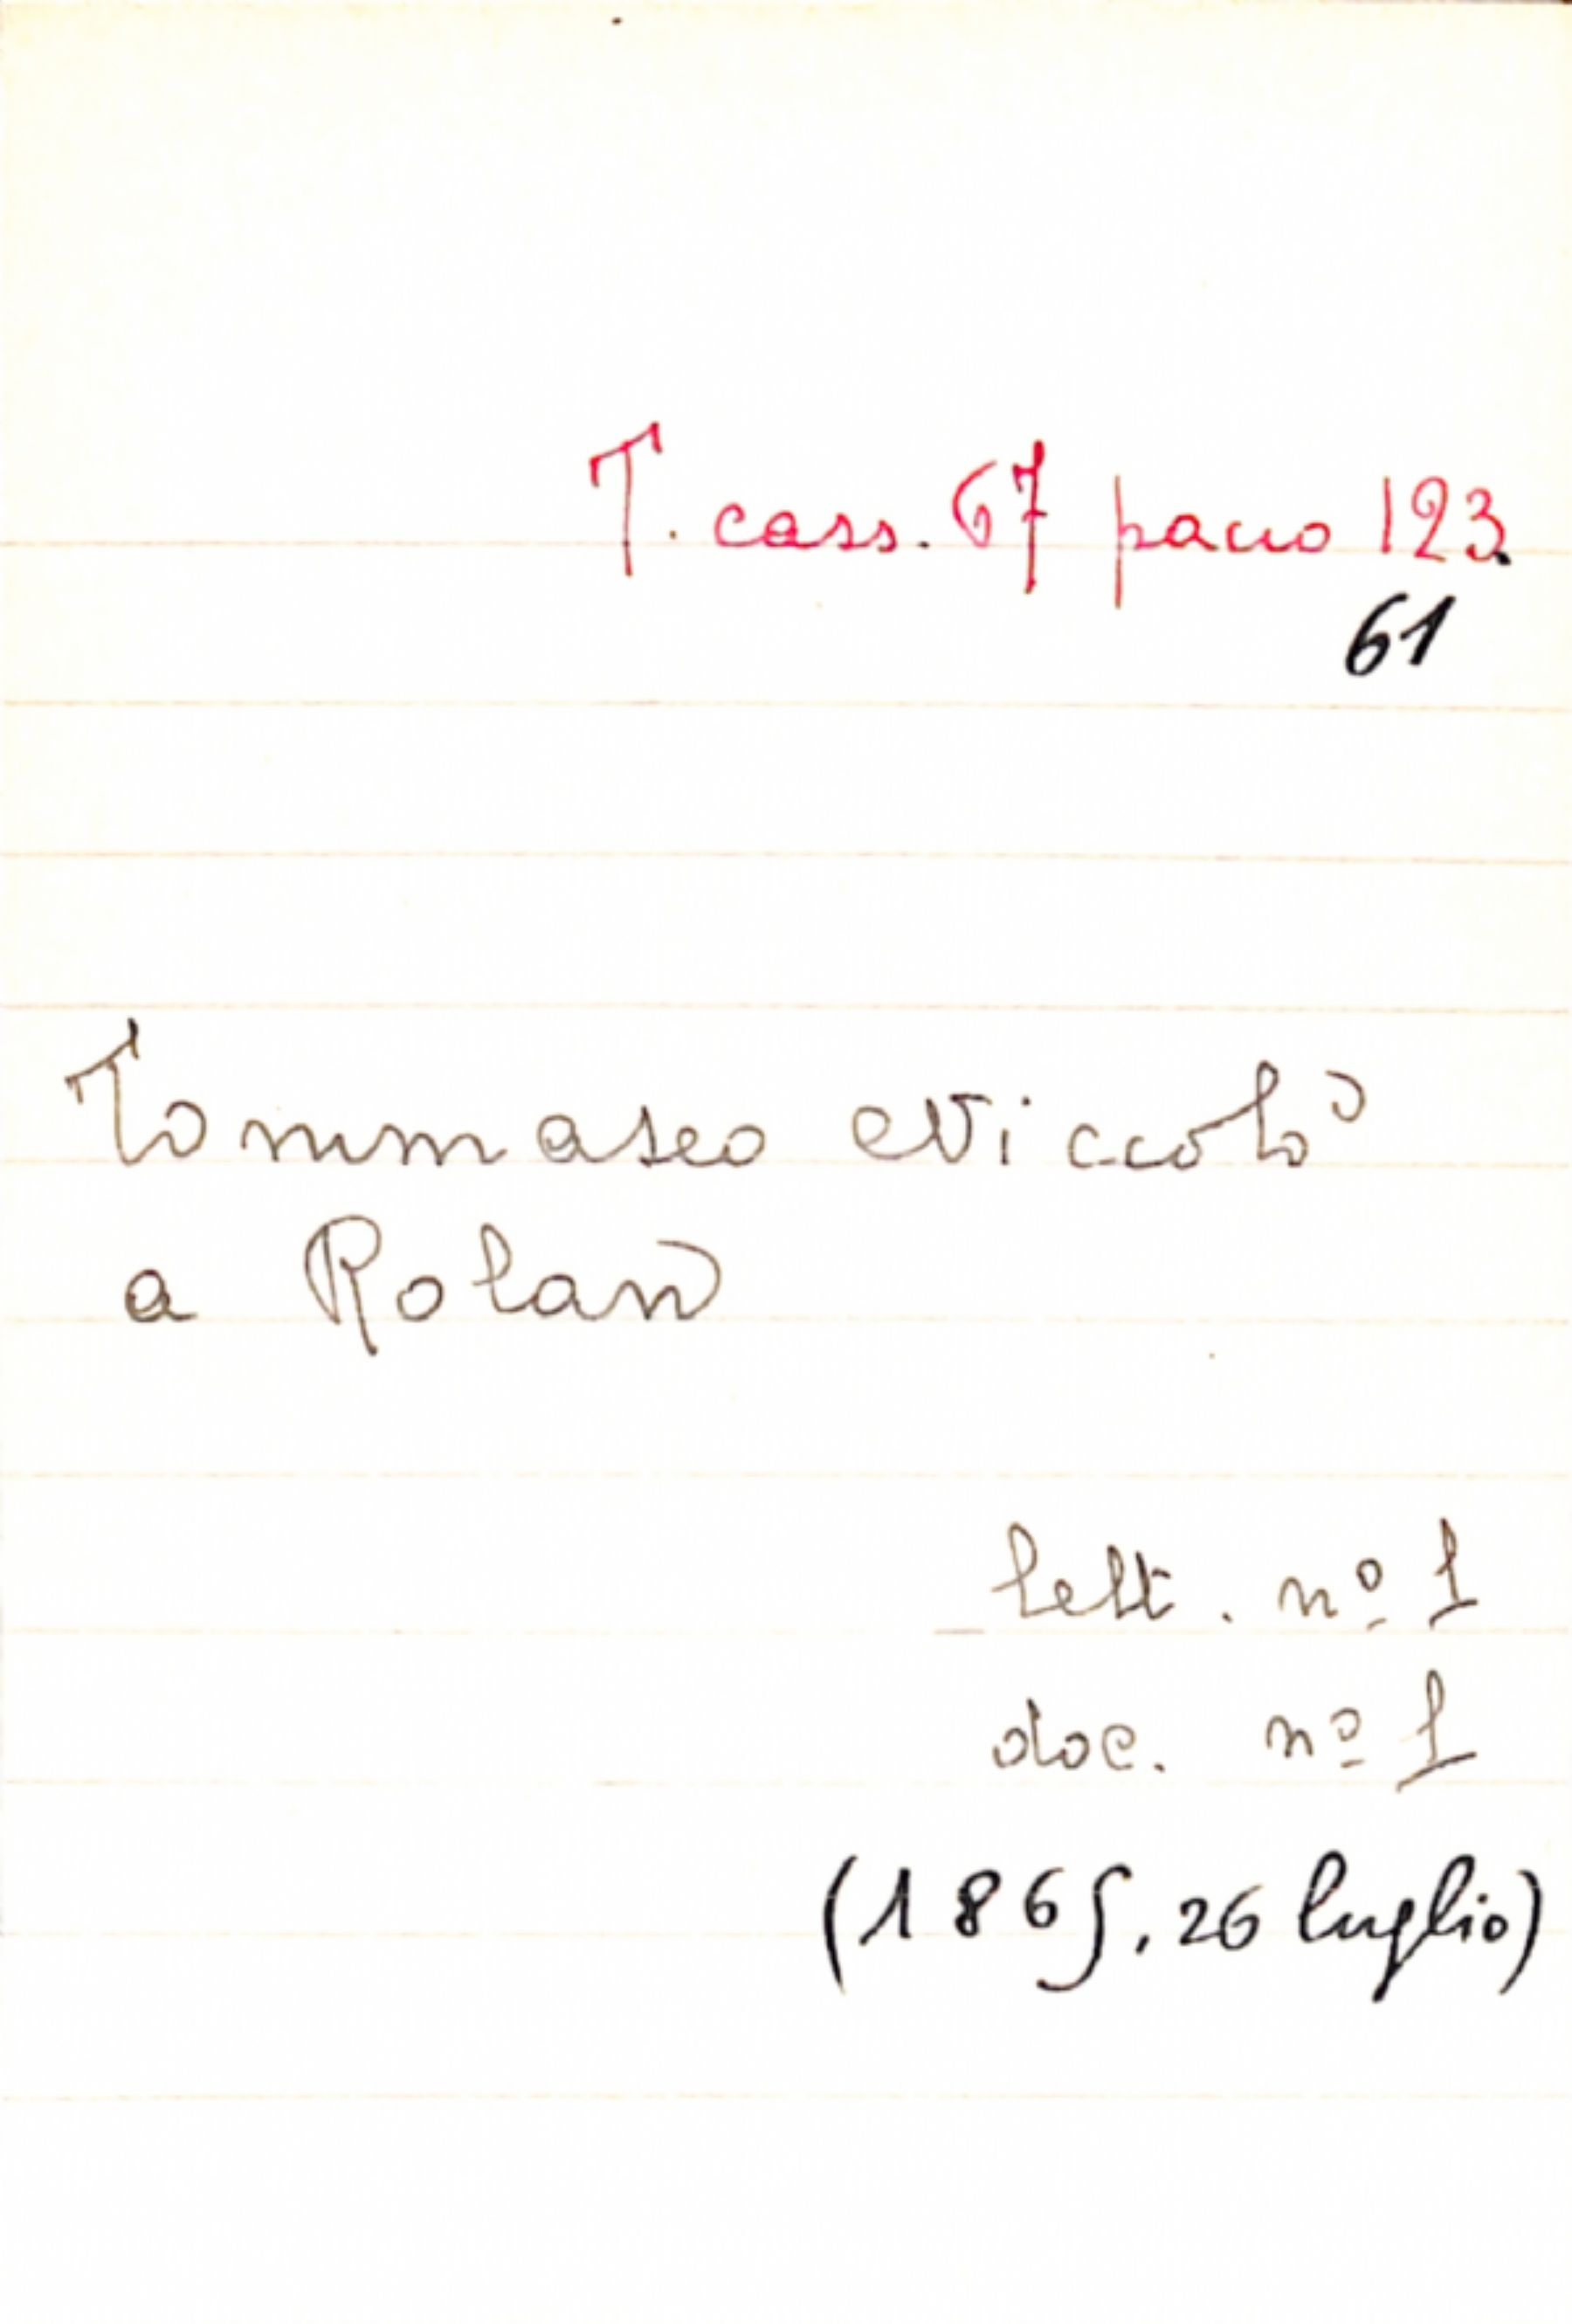 T. cass. 67 pacco 123.
61
Tommaseo Niccolò
a Rolan
lett. nº 1
doc. nº 1
(1865, 26 luglio)